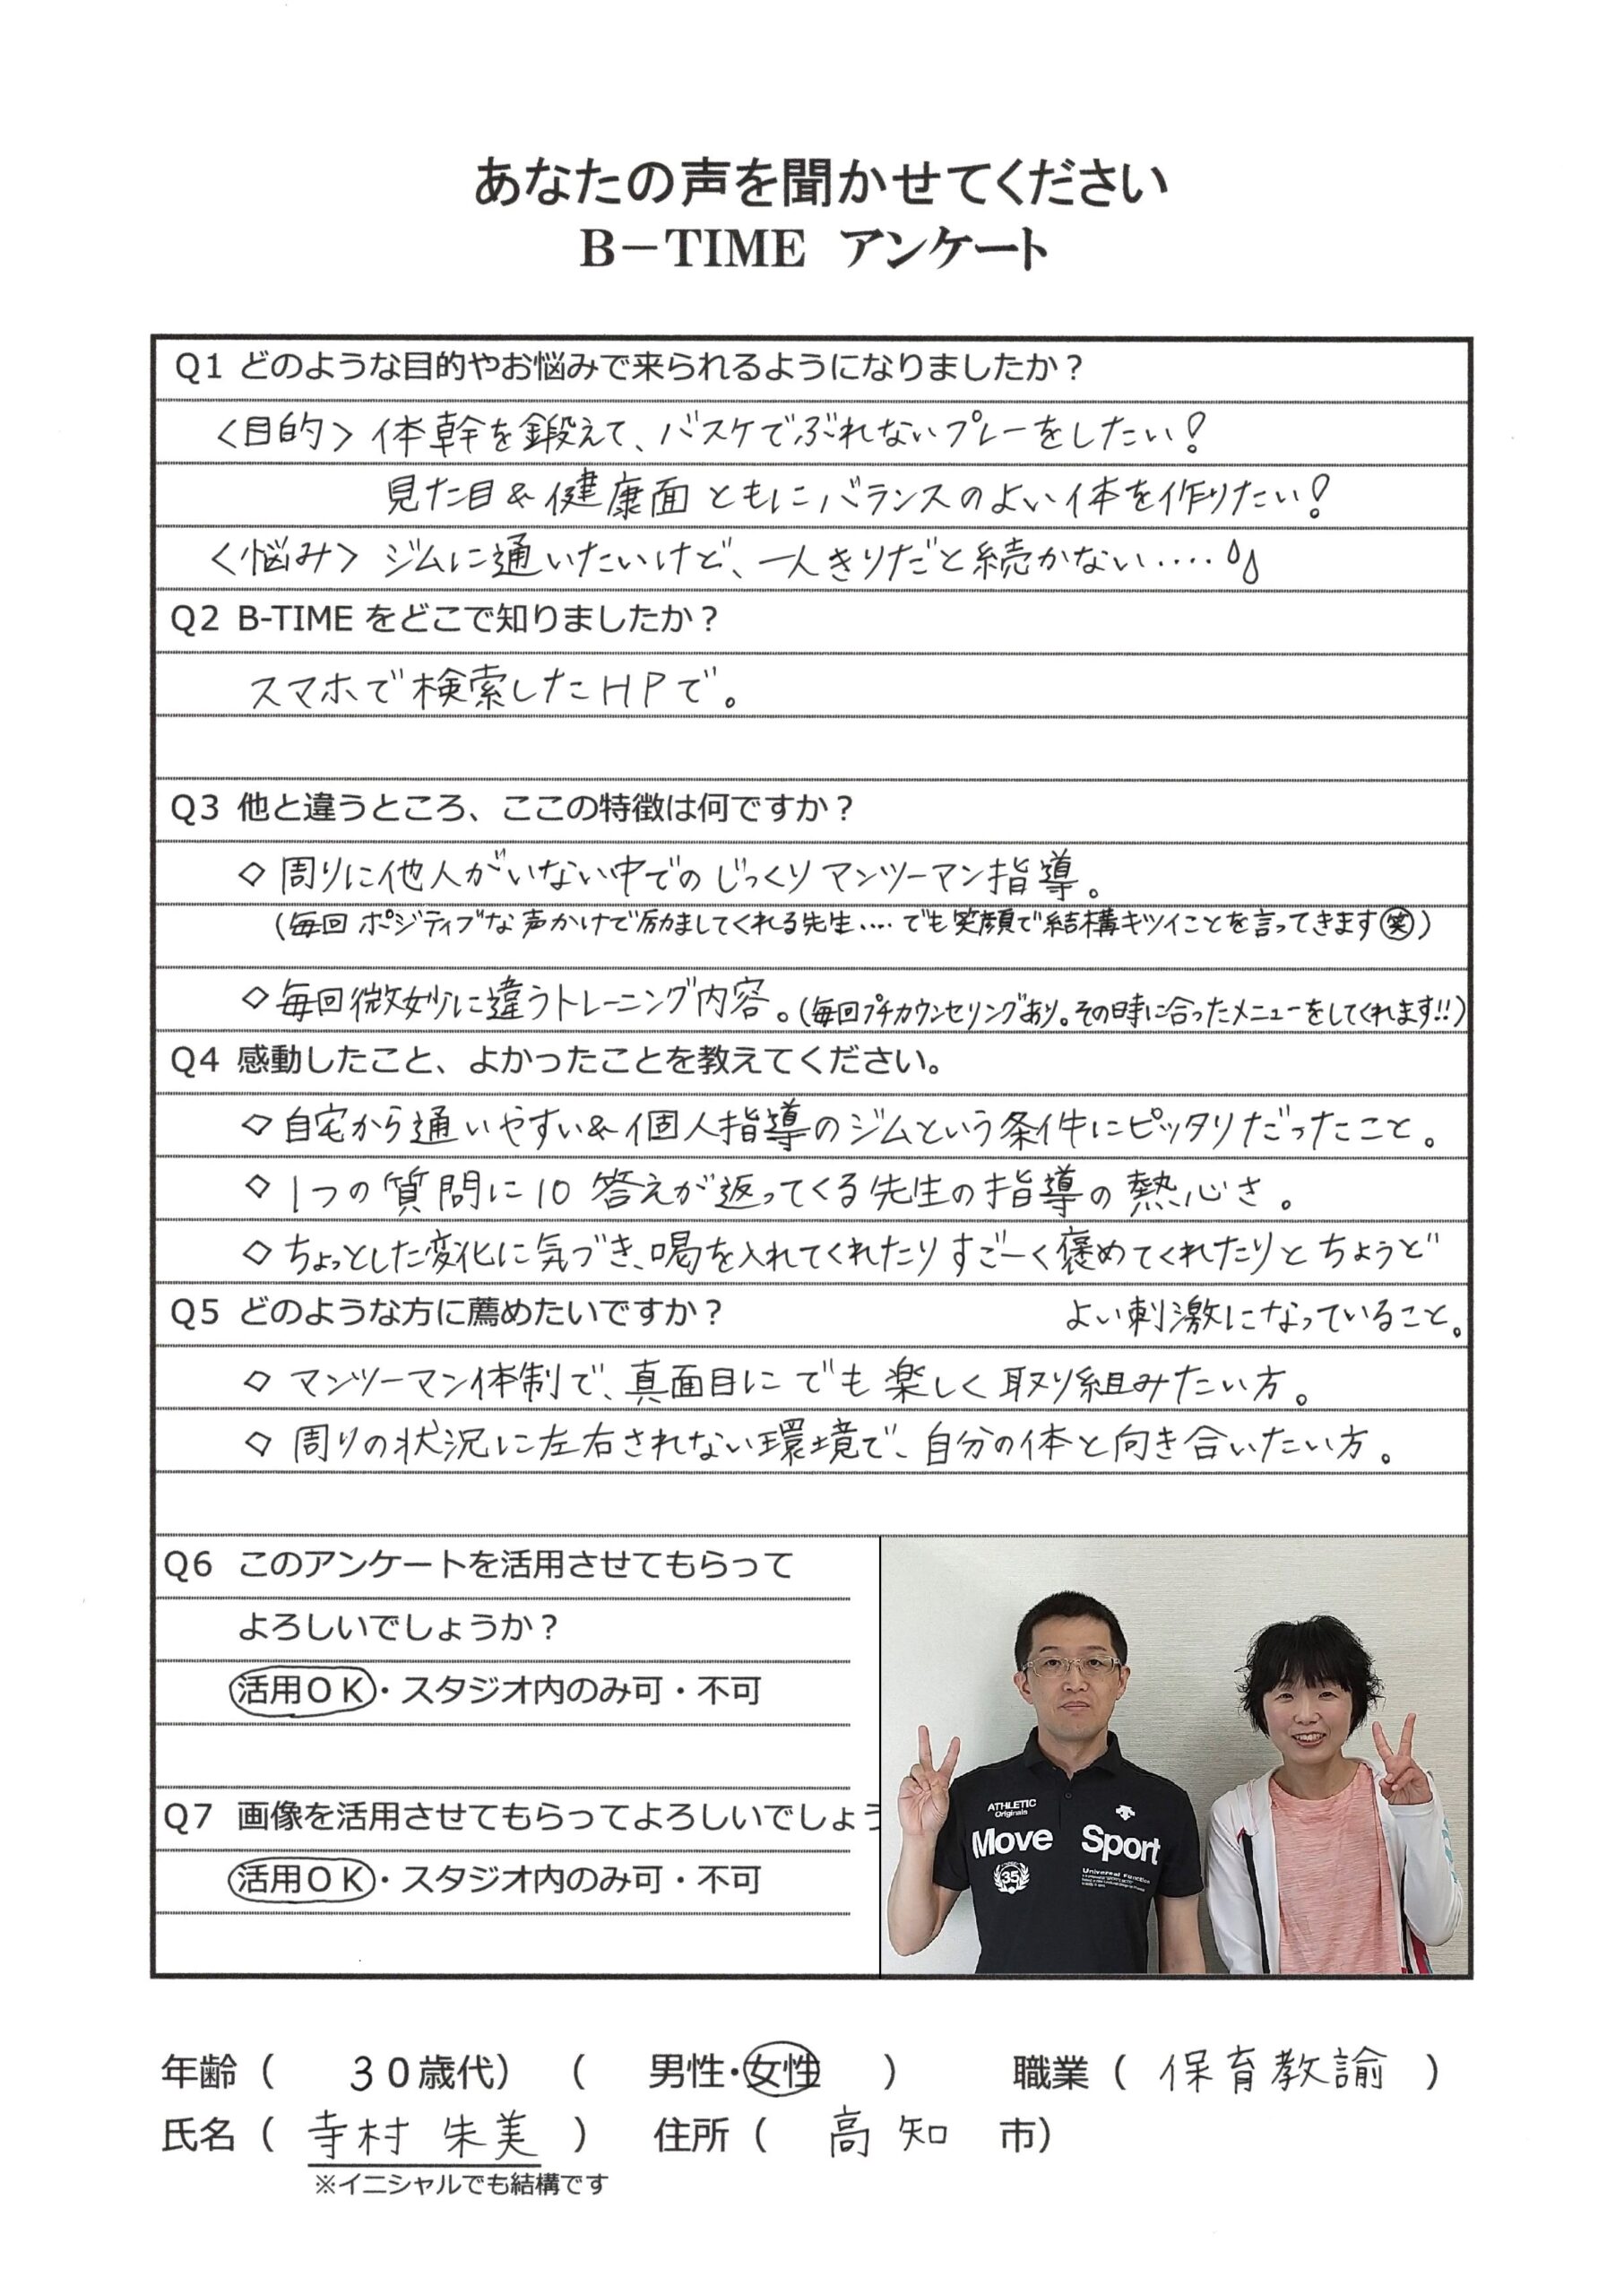 あなたの声を聞かせてください
B－TIME アンケート
Q1 どのような目的やお悩みで来られるようになりましたか？
＜目的＞ 体幹を鍛えて、バスケでぶれないプレーをしたい！
見た目＆健康面ともにバランスのよい体を作りたい！
＜悩み＞ ジムに通いたいけど、一人きりだと続かない‥‥
Q2 B-TIME をどこで知りましたか？
スマホで検索したHPで。
Q3 他と違うところ、ここの特徴は何ですか？
◇ 周りに他人がいない中でのじっくりマンツーマン指導。
（毎回 ポジティブな声かけで励ましてくれる先生‥‥でも笑顔で結構キツイことを言ってきます㊗笑）
◇ 毎回微妙に違うトレーニング内容。（毎回プチカウンセリングあり。その時に合ったメニューをしてくれます!!）
Q4 感動したこと、よかったことを教えてください。
◇ 自宅から通いやすい＆個人指導のジムという条件にピッタリだったこと。
◇ 1つの質問に10答えが返ってくる先生の指導の熱心さ。
◇ ちょっとした変化に気づき、喝を入れてくれたりすごーく褒めてくれたりとちょうど
よい刺激になっていること。
Q5 どのような方に薦めたいですか？
◇ マンツーマン体制で、真面目にでも楽しく取り組みたい方。
◇ 周りの状況に左右されない環境で、自分の体と向き合いたい方。
Q6 このアンケートを活用させてもらって
よろしいでしょうか？
活用ＯＫ・スタジオ内のみ可・不可
Q7 画像を活用させてもらってよろしいでしょう
活用ＯＫ・スタジオ内のみ可・不可
ATHLETIC
Originals
Move Sport
35
Universal Function
年齢（ 30歳代） （ 男性・女性 ） 職業（ 保育教諭 ）
氏名（ 寺村 朱美 ） 住所（ 高知 市）
※イニシャルでも結構です